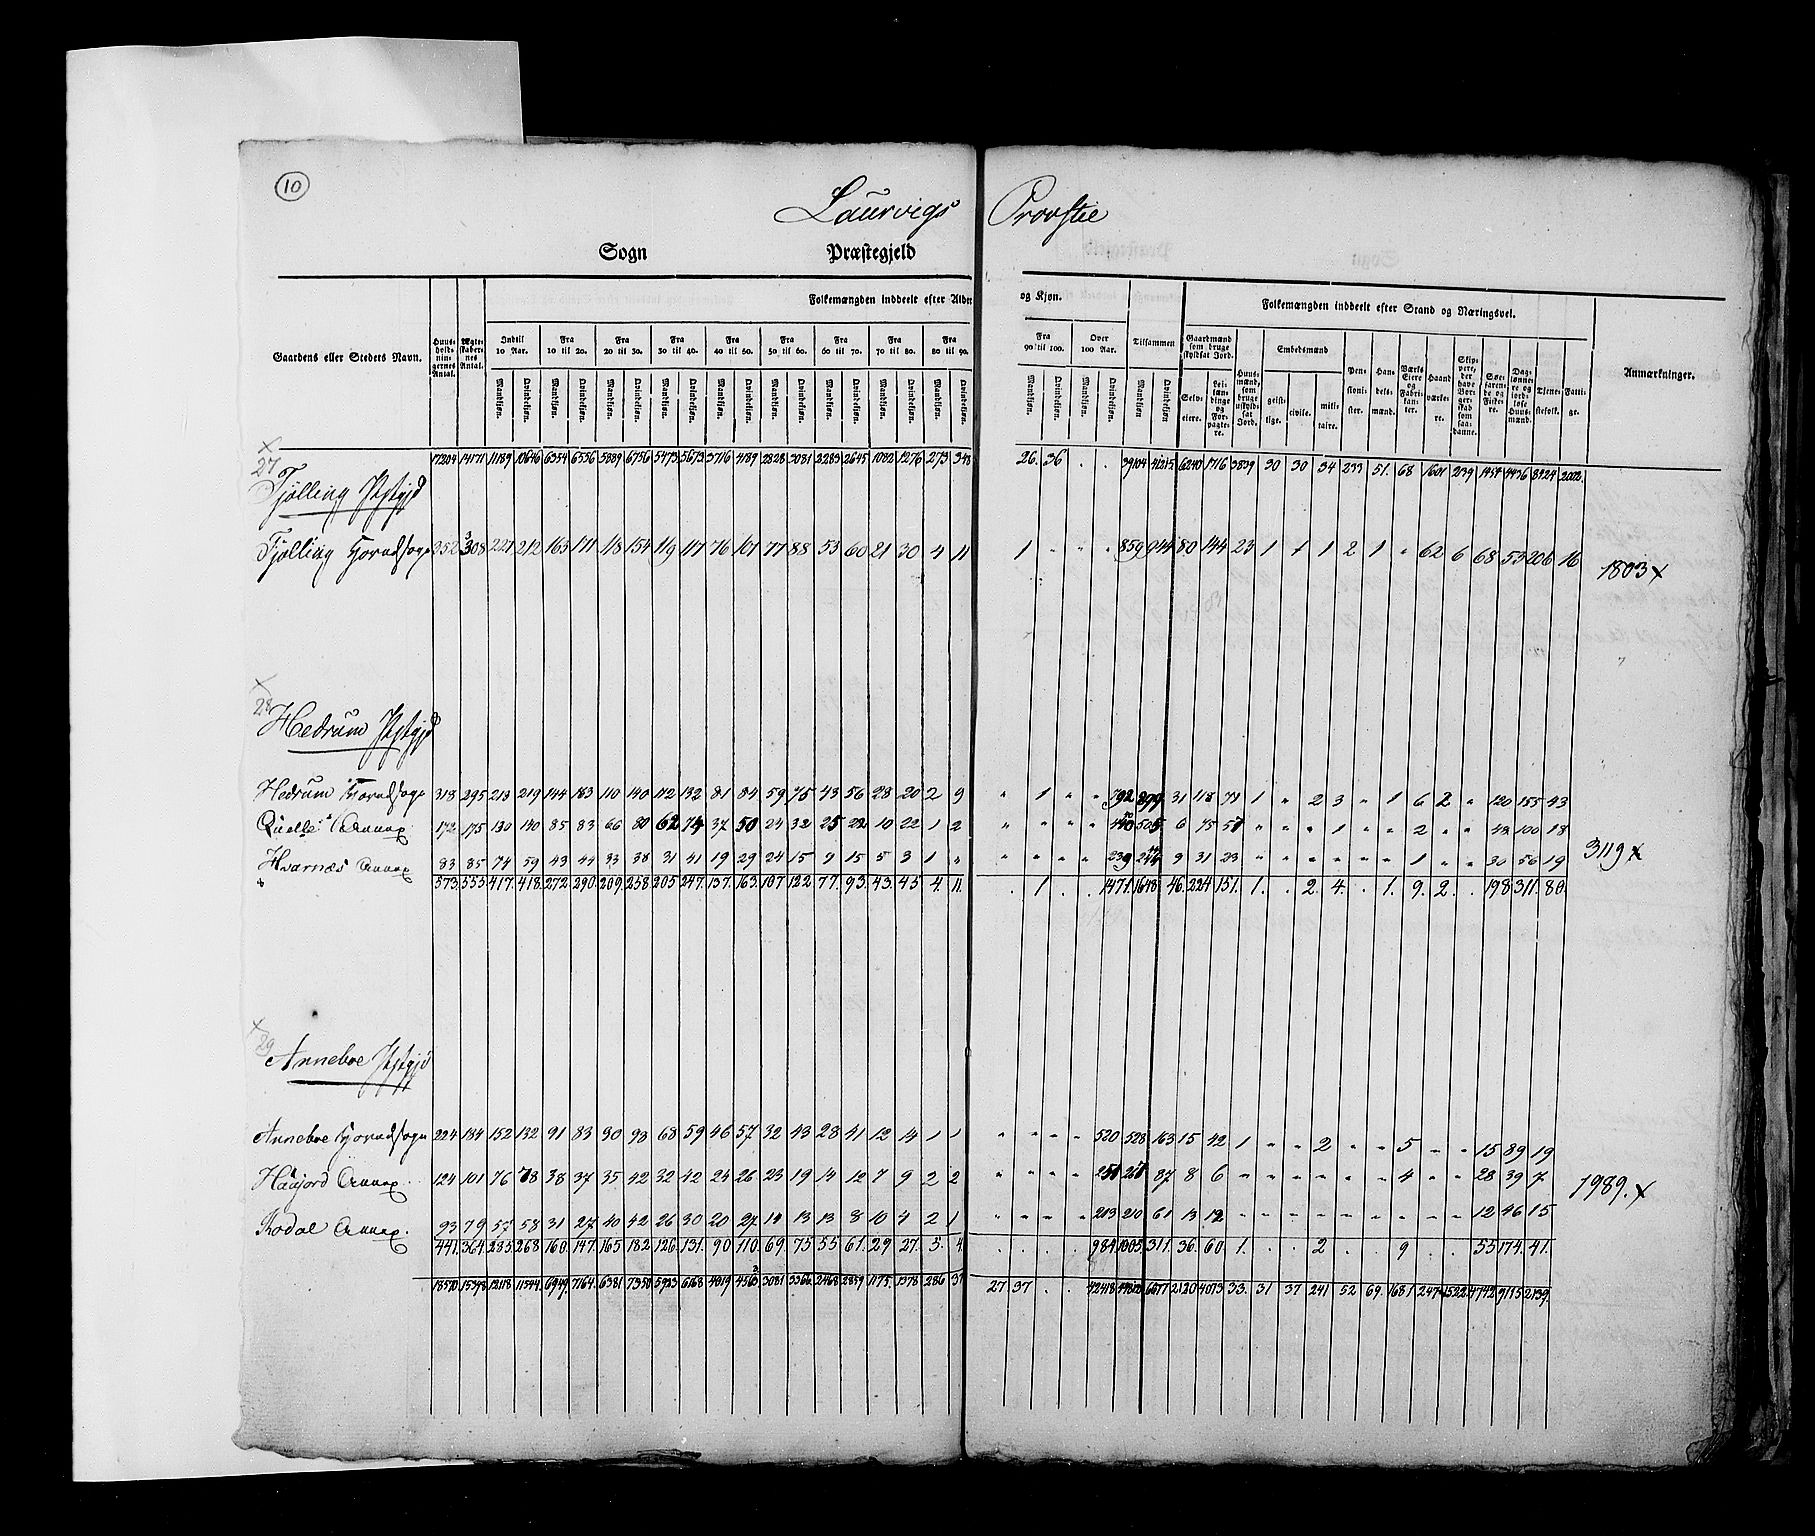 10
Laurvigs Provstie
Sogn Præstegjeld
Gaardens eller Steders Navn.
Huus-holdningernes Antal.
Ægteskabernes Antal.
Folkemængden inddeelt efter Alder og Kjøn.
Indtil 10 Aar.
Fra 10 til 20.
Fra 20 til 30.
Fra 30 til 40.
Fra 40 til 50.
Fra 50 til 60.
Fra 60 til 70.
Fra 70 til 80.
Fra 80 til 90.
Fra 90 til 100.
Over 100 Aar.
Tilsammen
Mandkjøn. Qvindekjøn.
Folkemængden inddeelt efter Stand og Næringsvei.
Gaardmænd som bruge skyldsat Jord.
Selveiere.
Leilændinge og Forpagtere.
Huusmænd, som bruge uskyldsat Jord.
Embedsmænd
geistlige.
civile.
militaire.
Pensionister.
Handelsmænd.
Værks Eiere og Fabrikanter.
Haandværkere.
Skippere, der have Borgerskab som saadanne.
Søefarende og Fiskere.
Daglønnere og jordløse Huusmænd.
Tjenestefolk.
Fattige.
Anmærkninger.
17204 14171 11189 10646 6354 6556 5889 6756 5473 5673 3716 4189 2828 3081 2283 2645 1082 1276 273 348 26. 36 . . 39104 41215 6240 1716 3839 30 30 34 233 51. 68 1601 239 1454 4436 8924 2002.
27
Tjølling Pstgjd
Tjølling Hovedsogn 352 308 227 212 163 171 118 154 119 117 76 101 77 88 53 60 21 30 4 11 1 " " " 859 944 80 144 23 1 1 1 2 1 " 62 6 68 53 206 16 1803 x
28
Hedrum Pstgjd
Hedrum Hovedsogn 318 295 213 219 144 163 110 140 112 132 81 84 59 75 43 56 28 20 2 9 " 1 " " 792 899 31 118 71 1 " 2 3 " 1 6 2 " 120 155 43
Quelle Annex 172 175 130 140 85 83 66 80 62 74 37 50 24 32 25 22 10 22 1 2 " " " " 440 505 6 75 57 " " " 1 " " 2 " " 48 100 18
Hvarnæs Annex 83 85 74 59 43 44 33 38 31 41 19 29 24 15 9 15 5 3 1 " " " " " 239 244 9 31 23 " " " " " " 1 " " 30 56 19 3119 x
573. 555 417. 418. 272. 290. 209. 258. 205. 247. 137. 163. 107 122. 77. 93. 43. 45. 4. 11. . 1. . . 1471. 1648 46. 224 151. 1. . 2. 4. . 1. 9. 2. . 198 311. 80.
29
Anneboe Pstgjd
Anneboe Hovedsogn 224 184 152 132 91 83 90 98 68 59 46 57 32 43 28 41 12 14 1 1 " " " " 520 528 163 15 42 1 " " 2 " " 5 " " 15 89 19
Haujord Annex. 124 101 76 78 38 37 35 42 32 42 24 26 23 19 14 12 7 9 2 2 " " " " 251 267 87 8 6 " " " " " " 4 " " 28 39 7
Kodal Annex. 93 79 57 58 31 27 40 42 26 30 20 27 14 13 13 8 10 4 2 1 " " " " 213 210 61 13 12 " " " " " " " " " 12 46 15 1989. x
441. 364. 285. 268. 160. 147. 165. 182. 126. 131. 90 110. 69. 75 55 61. 29 27. 5. 4. . . . . 984 1005 311. 36. 60. 1. . . 2 . . 9 . . 55 174. 41.
18570 15398 12118 11544 6949. 7164. 6381 7350 5923 6168 4019 4563 3081 3366 2468 2859 1175. 1378 286 27 37 . . 42418 6677 2120 4073 33. 31 37 241 52 69. 1681 247 1522. 4742 9115 2139.